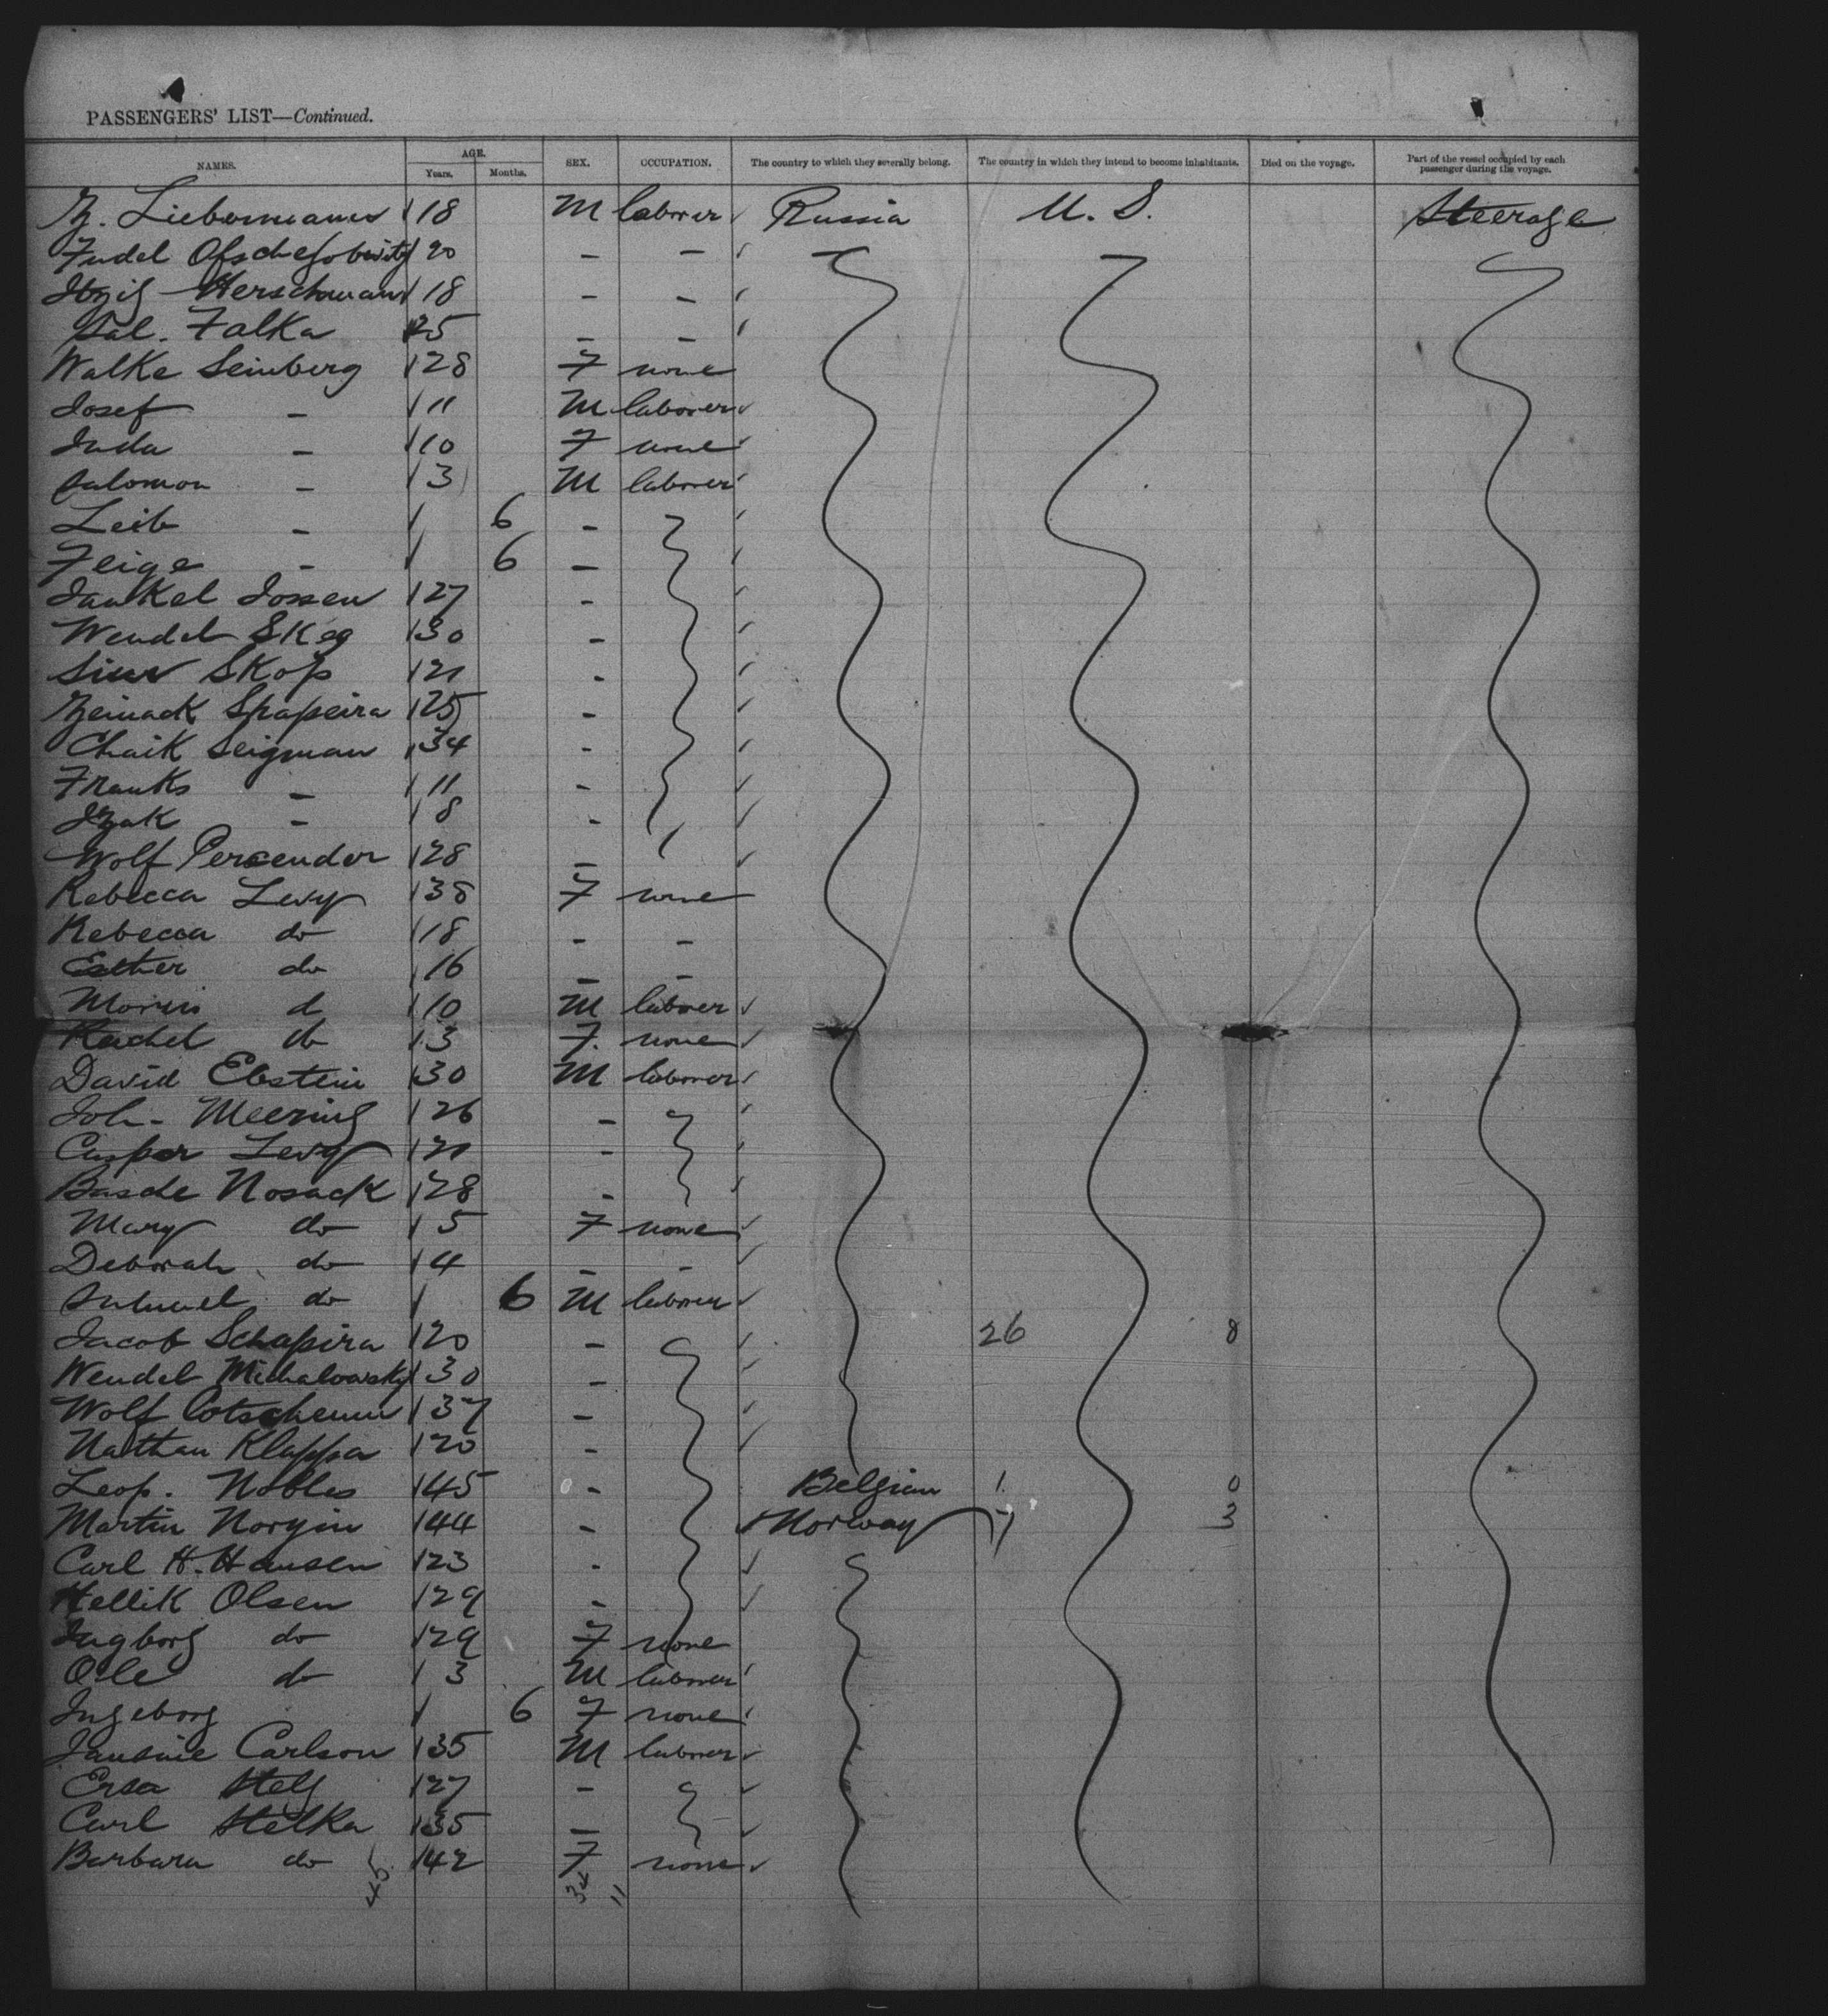 PASSENGERS' LIST—Continued.
NAMES. AGE. Years. Months. SEX. OCCUPATION. The country to which they severally belong. The country in which they intend to become inhabitants. Died on the voyage. Part of the vessel occupied by each passenger during the voyage.
Liebermann 18 M laborer Russia U. S. Steerage
Judel 20 - -
Itzig Herschmann 18 - -
Sal. Falka 25 - -
Walke Seinberg 28 F none
Josef - 11 M laborer
Juda - 10 F none
Salomon - 3 M laborer
Leib - 6 -
Feige - 6 -
Jankel Jossen 27 -
Wendel 30 -
Skop 21 -
Spapeira 25 -
Chaik Seigman 34 -
Franks - 11 -
Izak - 8 -
Wolf Percender 28 -
Rebecca Levy 38 F none
Rebecca do 18 - -
Esther do 16 - -
Morris d 10 M laborer
Rachel do 3 F. none
David Ebstein 30 M laborer
Joh- Meering 26 -
Casper Levy 21 -
Basde Nosack 28 -
Mary do 5 F none
Deborah do 4 - -
Samuel do 6 M laborer
Jacob Schapira 20 - 26 8
Wendel Michalowsky 30 -
Wolf 37 -
Nathan Klappa 20 -
Leop. Nobles 45 - Belgian 1 0
Martin Norgin 44 - Norway 7 3
Carl H. Hansen 23 -
Hellik Olsen 29 -
Ingborg do 29 F none
Ole do 3 M laborer
Ingeborg 6 F none
Carlson 35 M laborer
Ersa 27 -
Carl Stelka 35 -
Barbara do 42 F none
45 34 11